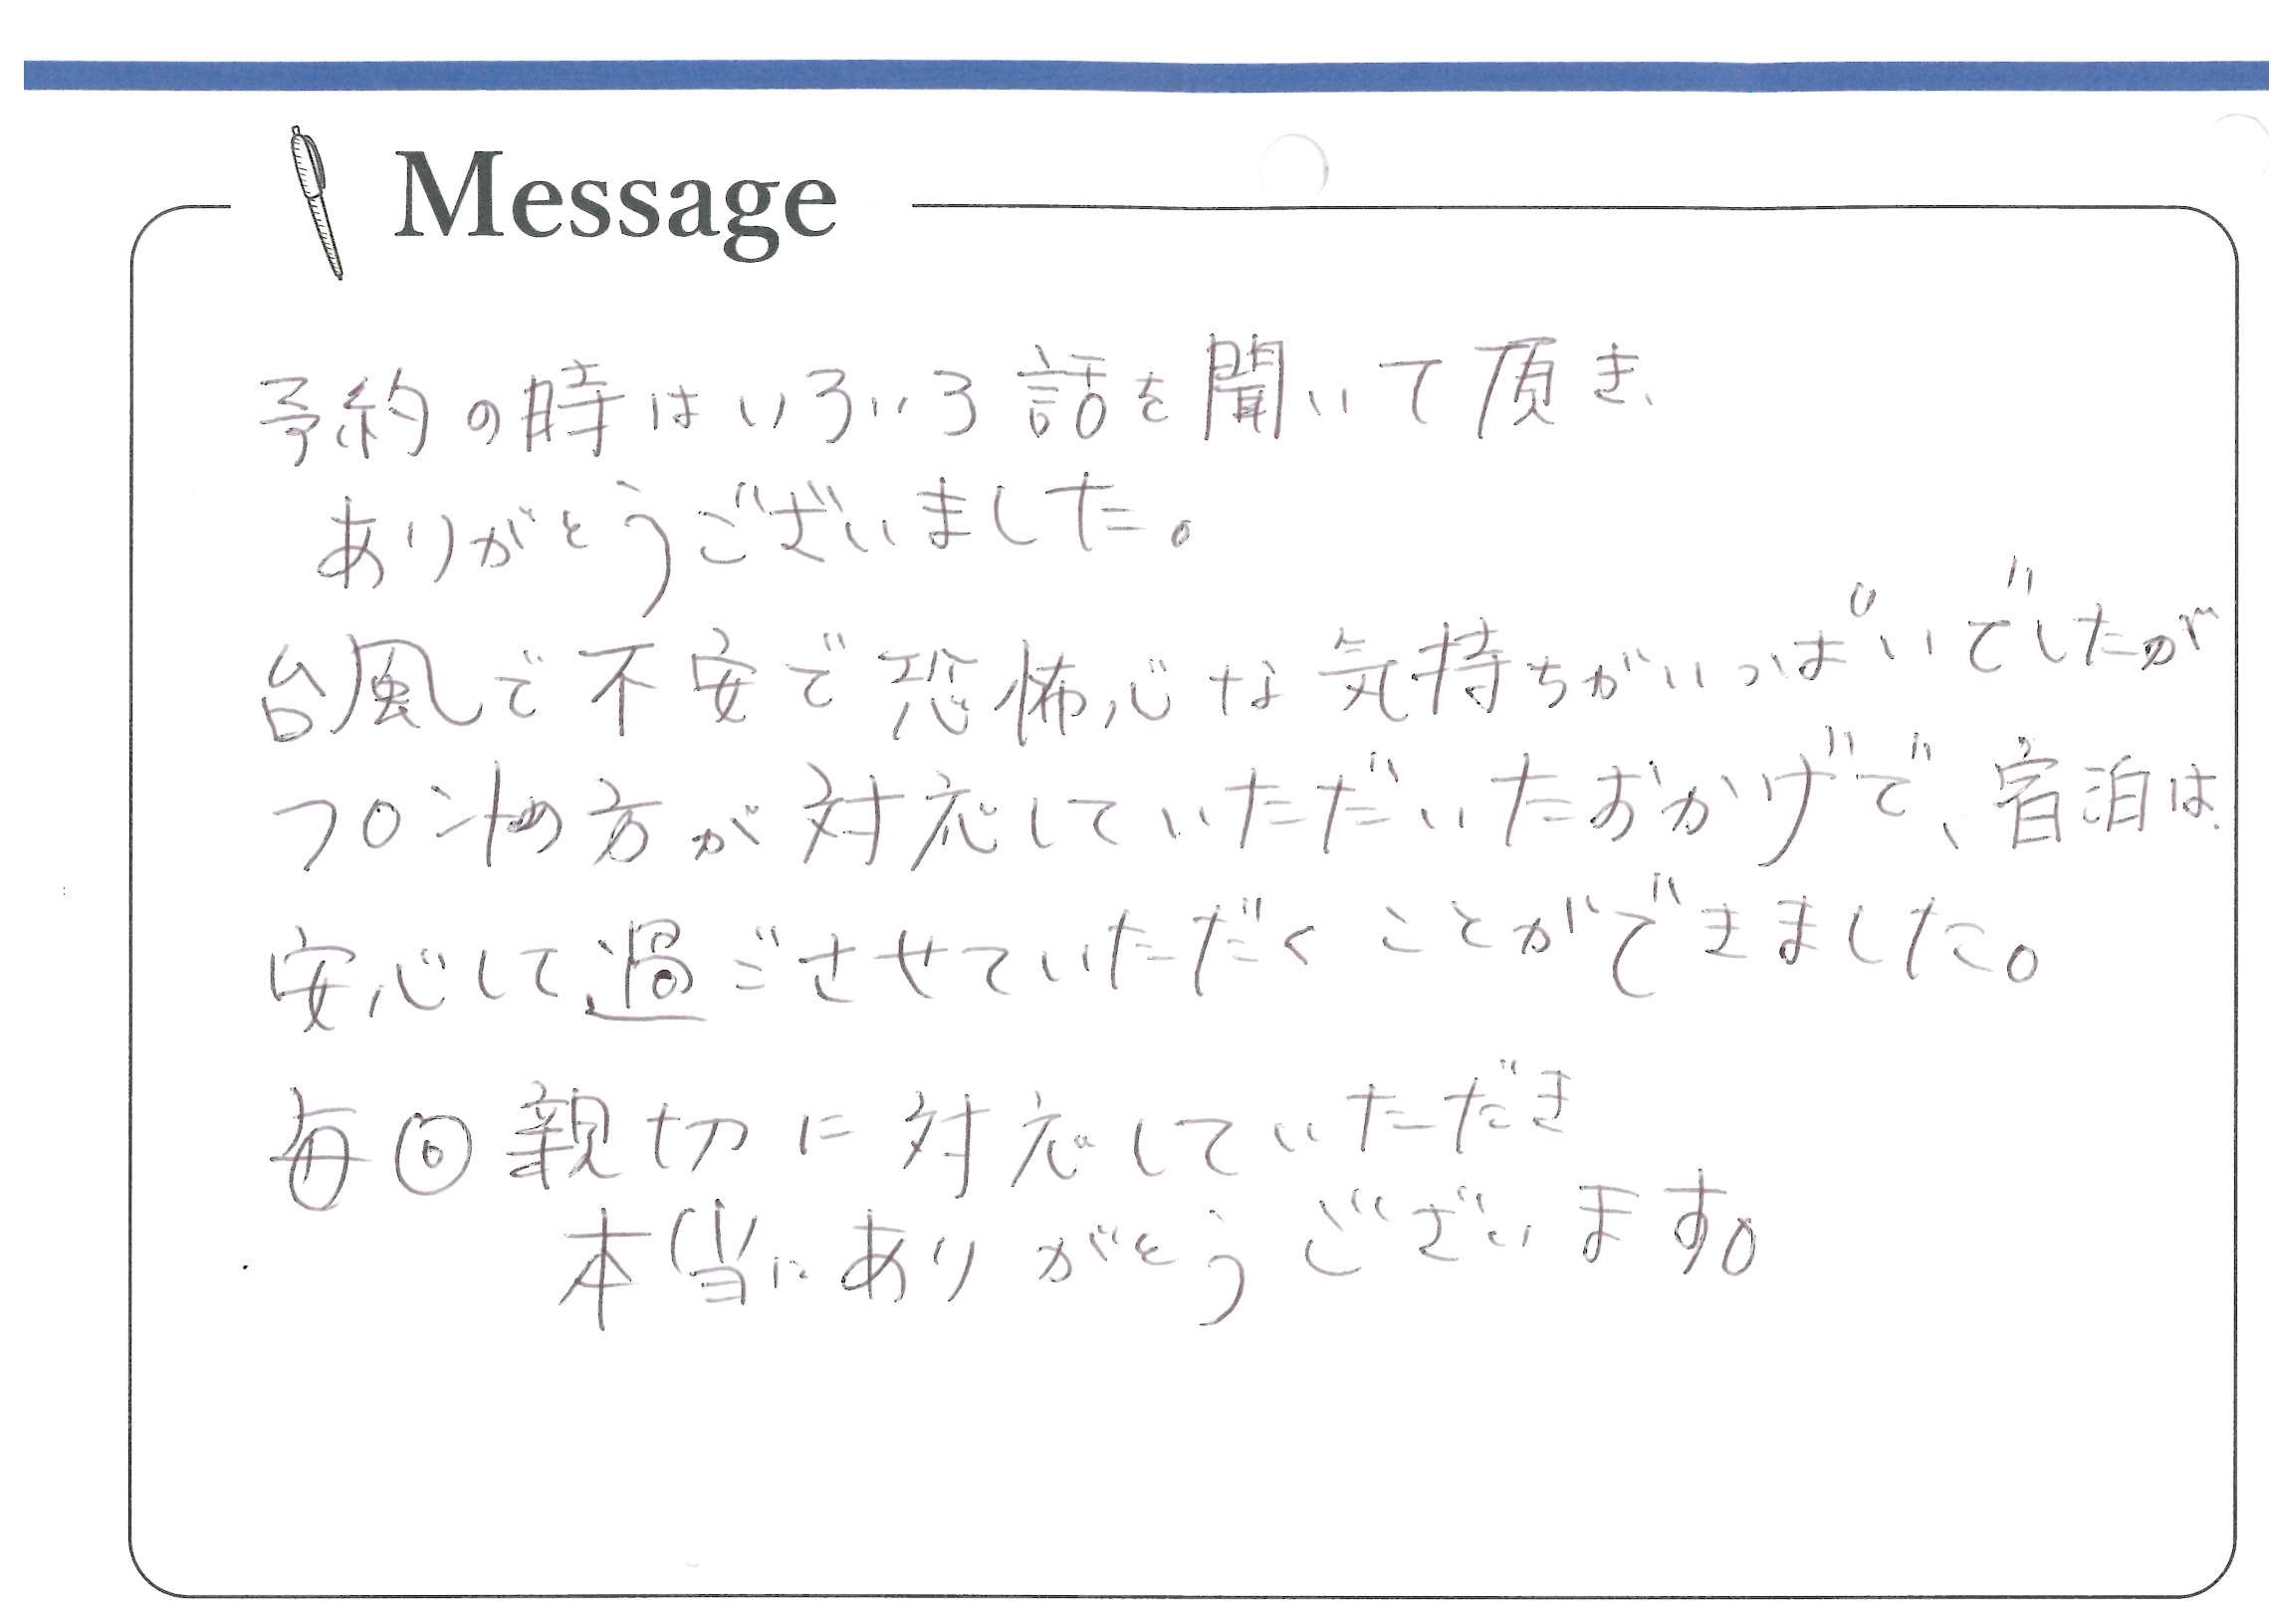 Message
予約の時はいろいろ話を聞いて頂き、
ありがとうございました。
台風で不安で恐怖心な気持ちがいっぱいでしたが
フロントの方が対応していただいたおかげで、宿泊は
安心して過ごさせていただくことができました。
毎回親切に対応していただき
本当にありがとうございます。